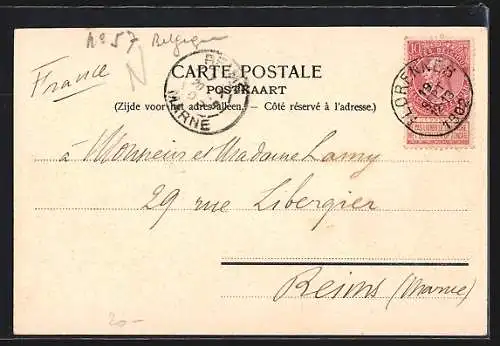 N° 57 Belgique
France
N
CARTE POSTALE
POSTKAART
(Zijde voor het adres alleen. — Côté réservé à l'adresse.)
REIMS
MARNE
FLORENNES
1902
10
à Monsieur et Madame Lamy
29 rue Libergier
Reims (Marne)
20-